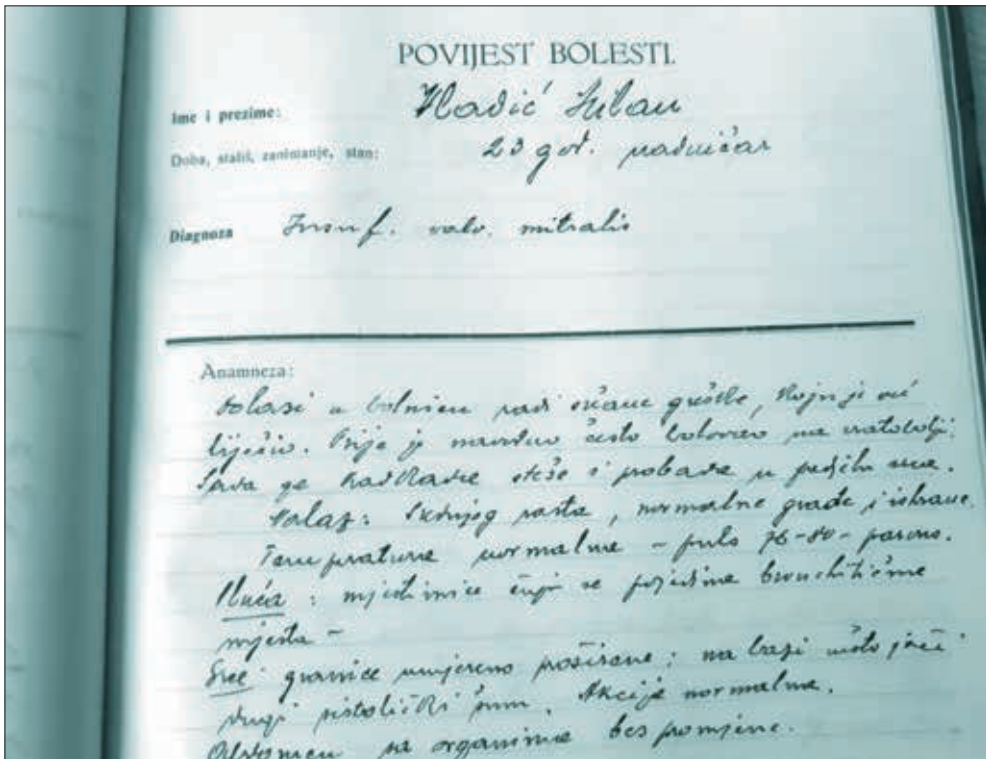 POVIJEST BOLESTI.
Ime i prezime: Vladić Milan
Doba, stališ, zanimanje, stan: 23 god. nadničar
Diagnoza Insuf. valv. mitralis
Anamneza:
dolazi u bolnicu radi srčane greške, koju je već
liječio. Prije je navodno često bolovao na vratobolji.
Sada ga kadkada steže i probada u predjelu srca.
Nalaz: Srednjeg rasta, normalne građe i ishrane.
Temperature normalne - puls 76-80-
Pluća: mjestimice čuju se pojedina bronchitična
mjesta -
Srce granice umjereno proširene; na bazi nešto jači
drugi sistolički šum. Akcija normalna.
na organima bez promjene.